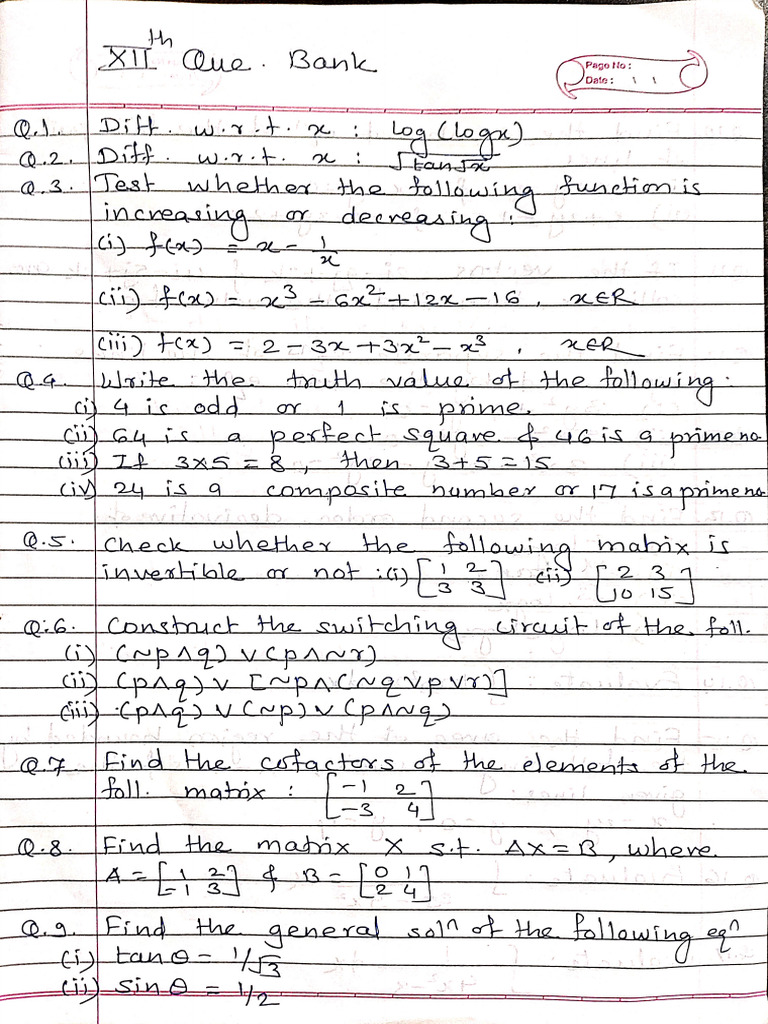 XIIth Que. Bank
Page No:
Date: \ \
Q.1. Diff. w.r.t. x : log (logx)
Q.2. Diff. w.r.t. x : √tan√x
Q.3. Test whether the following function is
increasing or decreasing :
(i) f(x) = x - 1/x
(ii) f(x) = x³ - 6x² + 12x - 16, x∈R
(iii) f(x) = 2 - 3x + 3x² - x³, x∈R
Q.4. Write the truth value of the following :
(i) 4 is odd or 1 is prime.
(ii) 64 is a perfect square & 46 is a prime no.
(iii) If 3×5 = 8, then 3+5 = 15
(iv) 24 is a composite number or 17 is a prime no.
Q.5. Check whether the following matrix is
invertible or not : (i) [1 2 (ii) [2 3
3 3] 10 15]
Q.6. Construct the switching circuit of the foll.
(i) (~p∧q) ∨ (p∧~r)
(ii) (p∧q) ∨ [~p∧(~q∨p∨r)]
(iii) (p∧q) ∨ (~p) ∨ (p∧~q)
Q.7 Find the cofactors of the elements of the
foll. matrix : [-1 2
-3 4]
Q.8. Find the matrix X s.t. AX = B, where
A = [1 2 & B = [0 1
-1 3] 2 4]
Q.9. Find the general solⁿ of the following eqⁿ
(i) tanθ = 1/√3
(ii) sinθ = 1/2